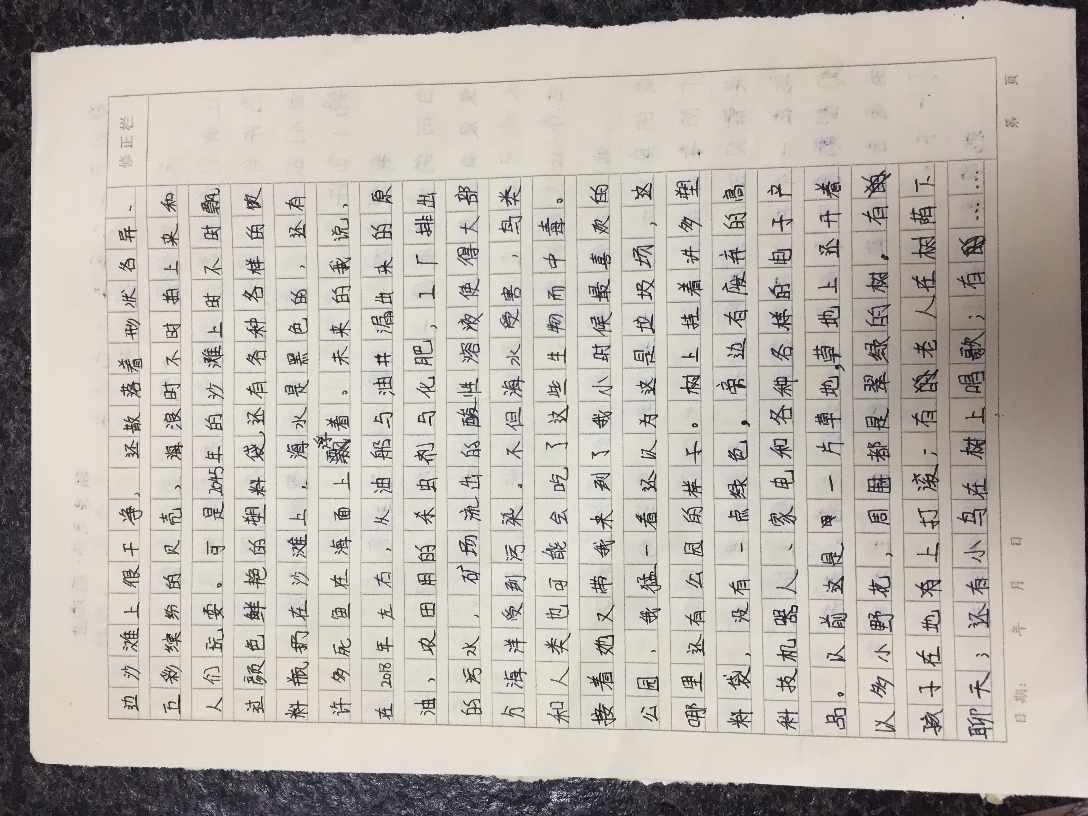 修正栏
边沙滩上很干净，还散落着形状各异、
五彩缤纷的贝壳、海浪时不时拍上来和
人们玩耍。可是2045年的沙滩上时不时飘
过颜色鲜艳的塑料袋还有各种各样的饮
料瓶扔在沙滩上，海水是黑色的，还有
许多死鱼在海面上飘浮着。未来的我说，
在2018年左右，从油船与油井漏出来的原
油，农田用的杀虫剂与化肥，工厂排出
的污水，矿场流出的酸性溶液使得大部
分海洋受到污染。不但海水受害，鸟类
和人类也可能会吃了这些生物而中毒。
接着她又带我来到了我小时候最喜欢的
公园，我猛一看还以为这是垃圾场，这
哪里还有公园的样子。树上挂着许多塑
料袋，没有一点绿色，旁边有废弃的高
科技机器人、家电和各种各样的电子产
品。以前这是一片草地，草地上还开着
以多小野花，周围都是翠绿的树。有
孩子在地上打滚；有老人在树荫下
聊天；还有小鸟在树上唱歌；有……
日期： 年 月 日
第 页